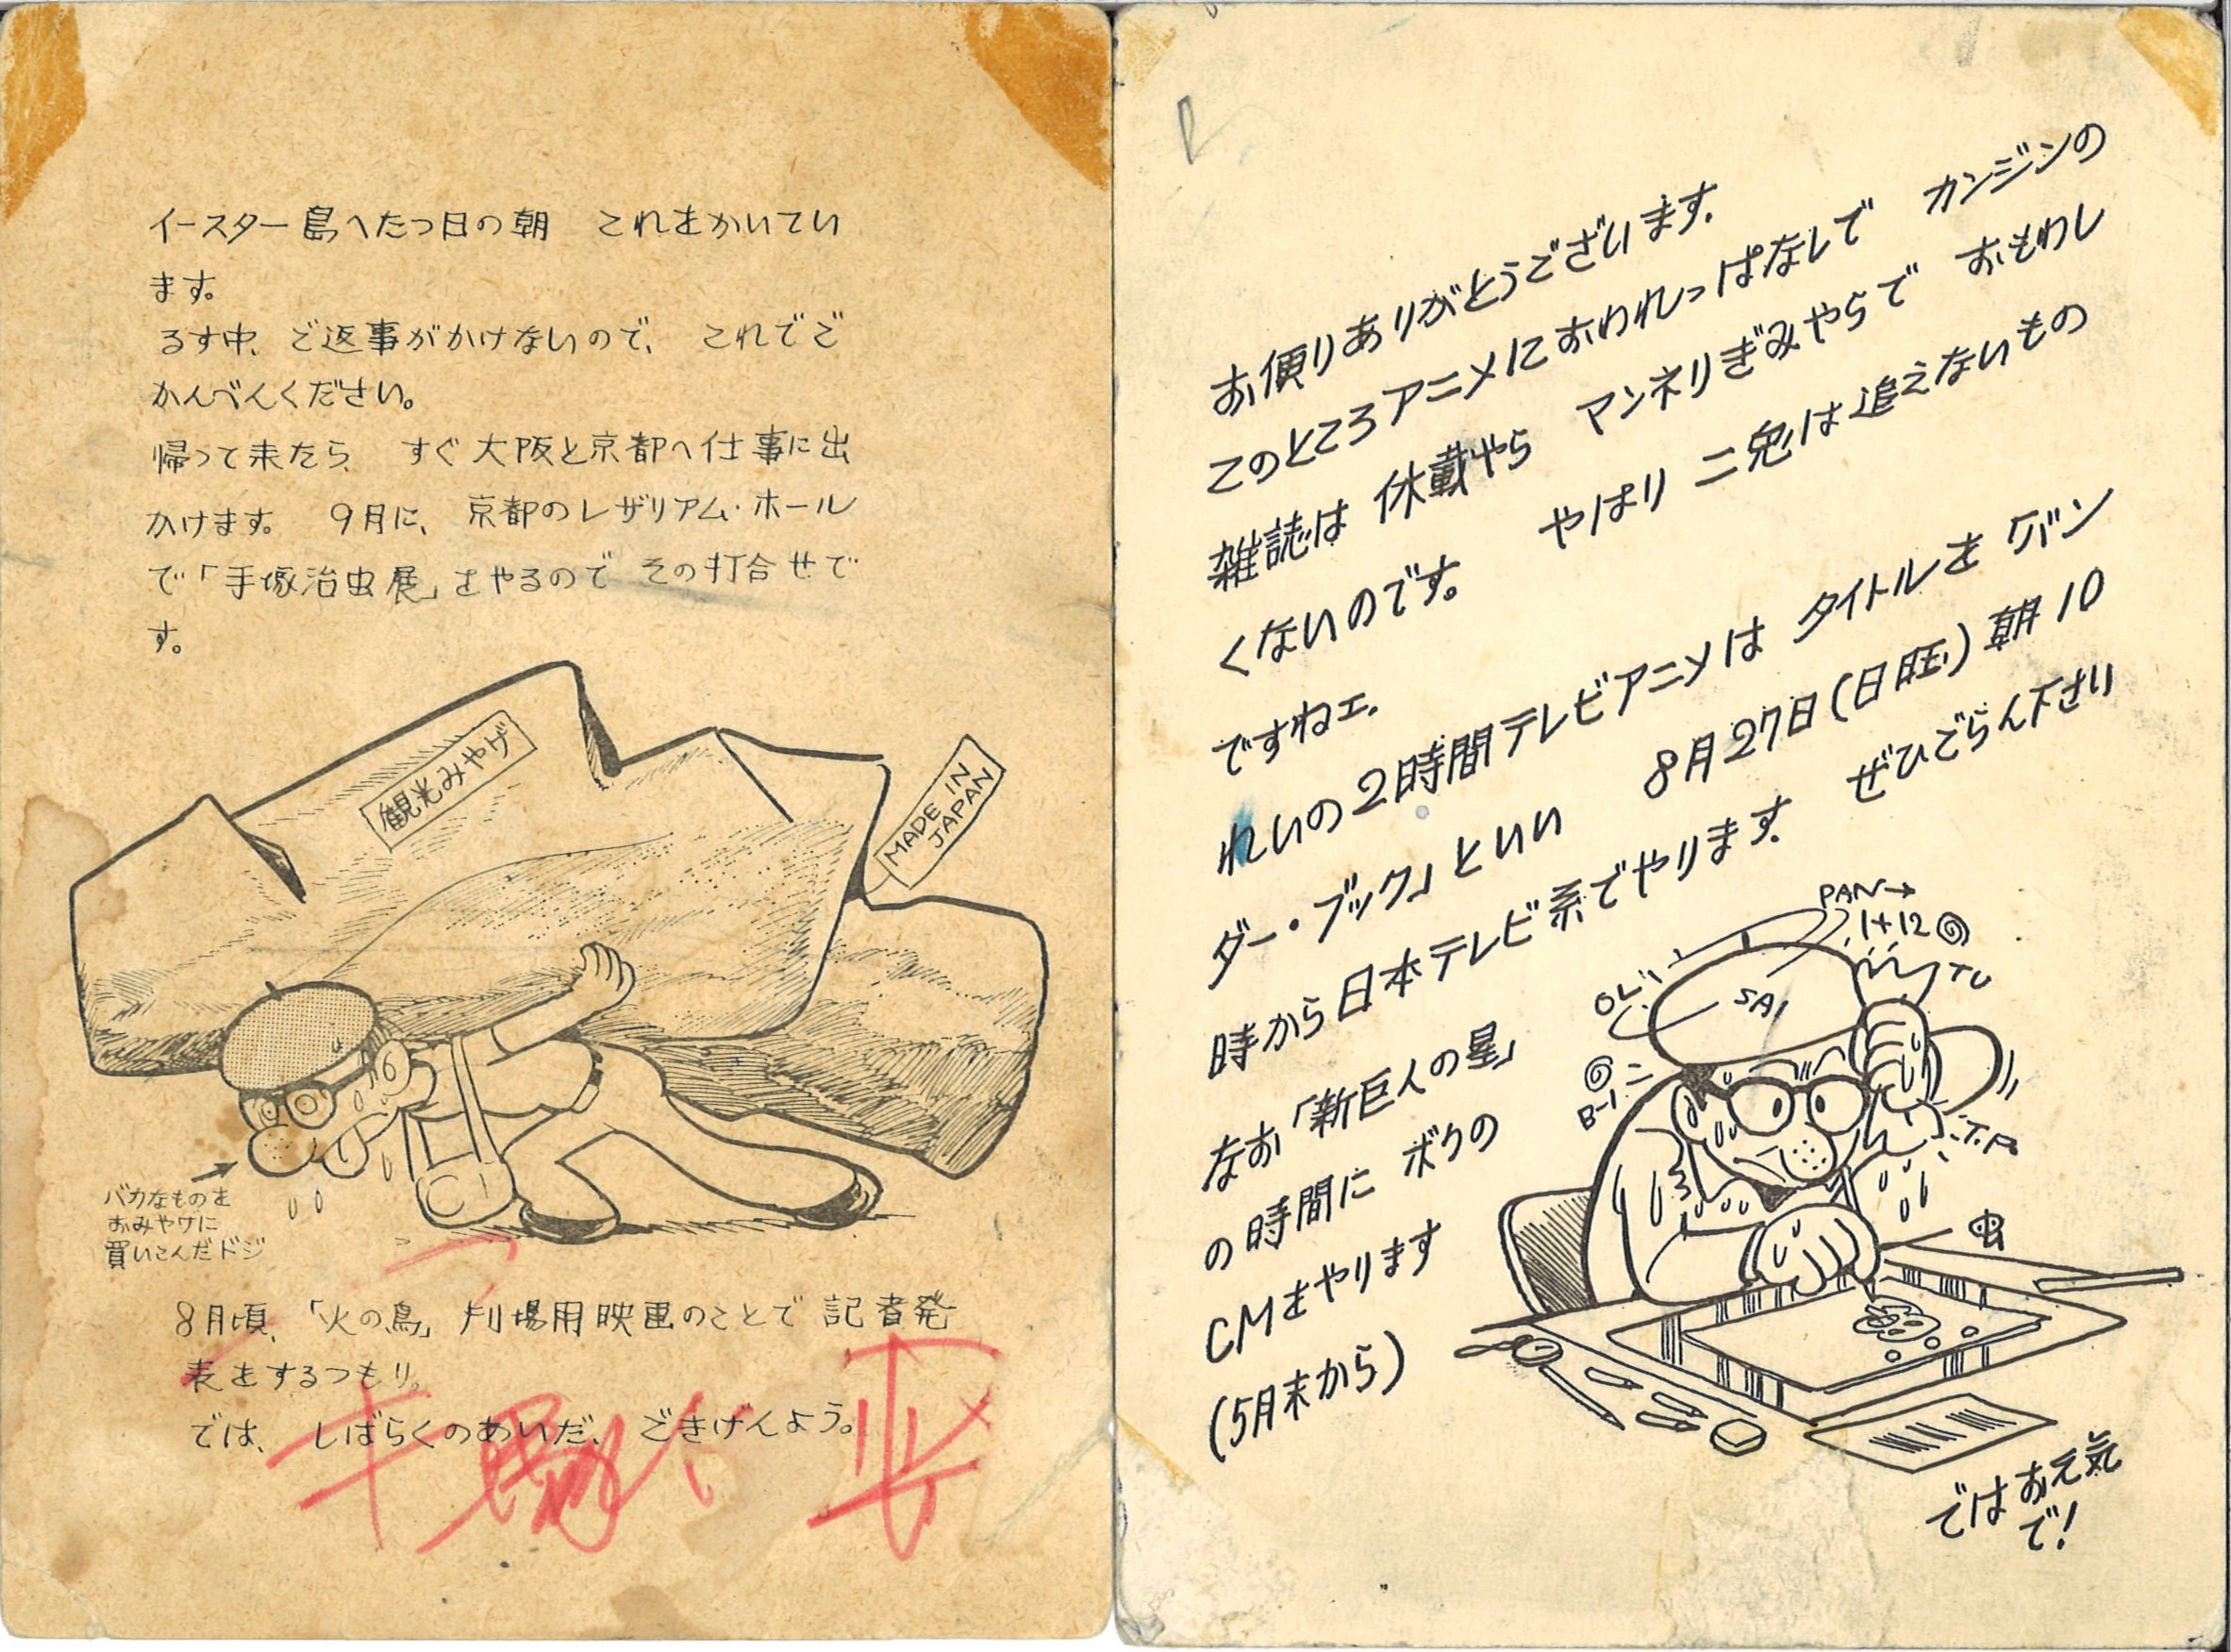 イースター島へたつ日の朝　これをかいてい
ます。
るす中、ご返事がかけないので、これでご
かんべんください。
帰って来たら、すぐ大阪と京都へ仕事に出
かけます。　9月に、京都のレザリアム・ホール
で「手塚治虫展」をやるので その打合せで
す。
観光みやげ
MADE IN
JAPAN
バカなものを
おみやげに
買いこんだドジ
8月頃、「火の鳥」劇場用映画のことで記者発
表をするつもり。
では、しばらくのあいだ、ごきげんよう。
お便りありがとうございます.
このところアニメにおわれっぱなしで　カンジンの
雑誌は 休載やら マンネリぎみやらで おもわし
くないのです。　やはり 二兎は追えないもの
ですねェ.
れいの2時間テレビアニメは タイトルを「バン
ダー・ブック」といい　8月27日(日旺)朝10
時から日本テレビ系でやります.　ぜひごらん下さい
なお「新巨人の星」
の時間に ボクの
CMをやります
(5月末から)
PAN→
1+12
TU
OL
SAI
B-1
T.P.
虫
ではお元気
で!